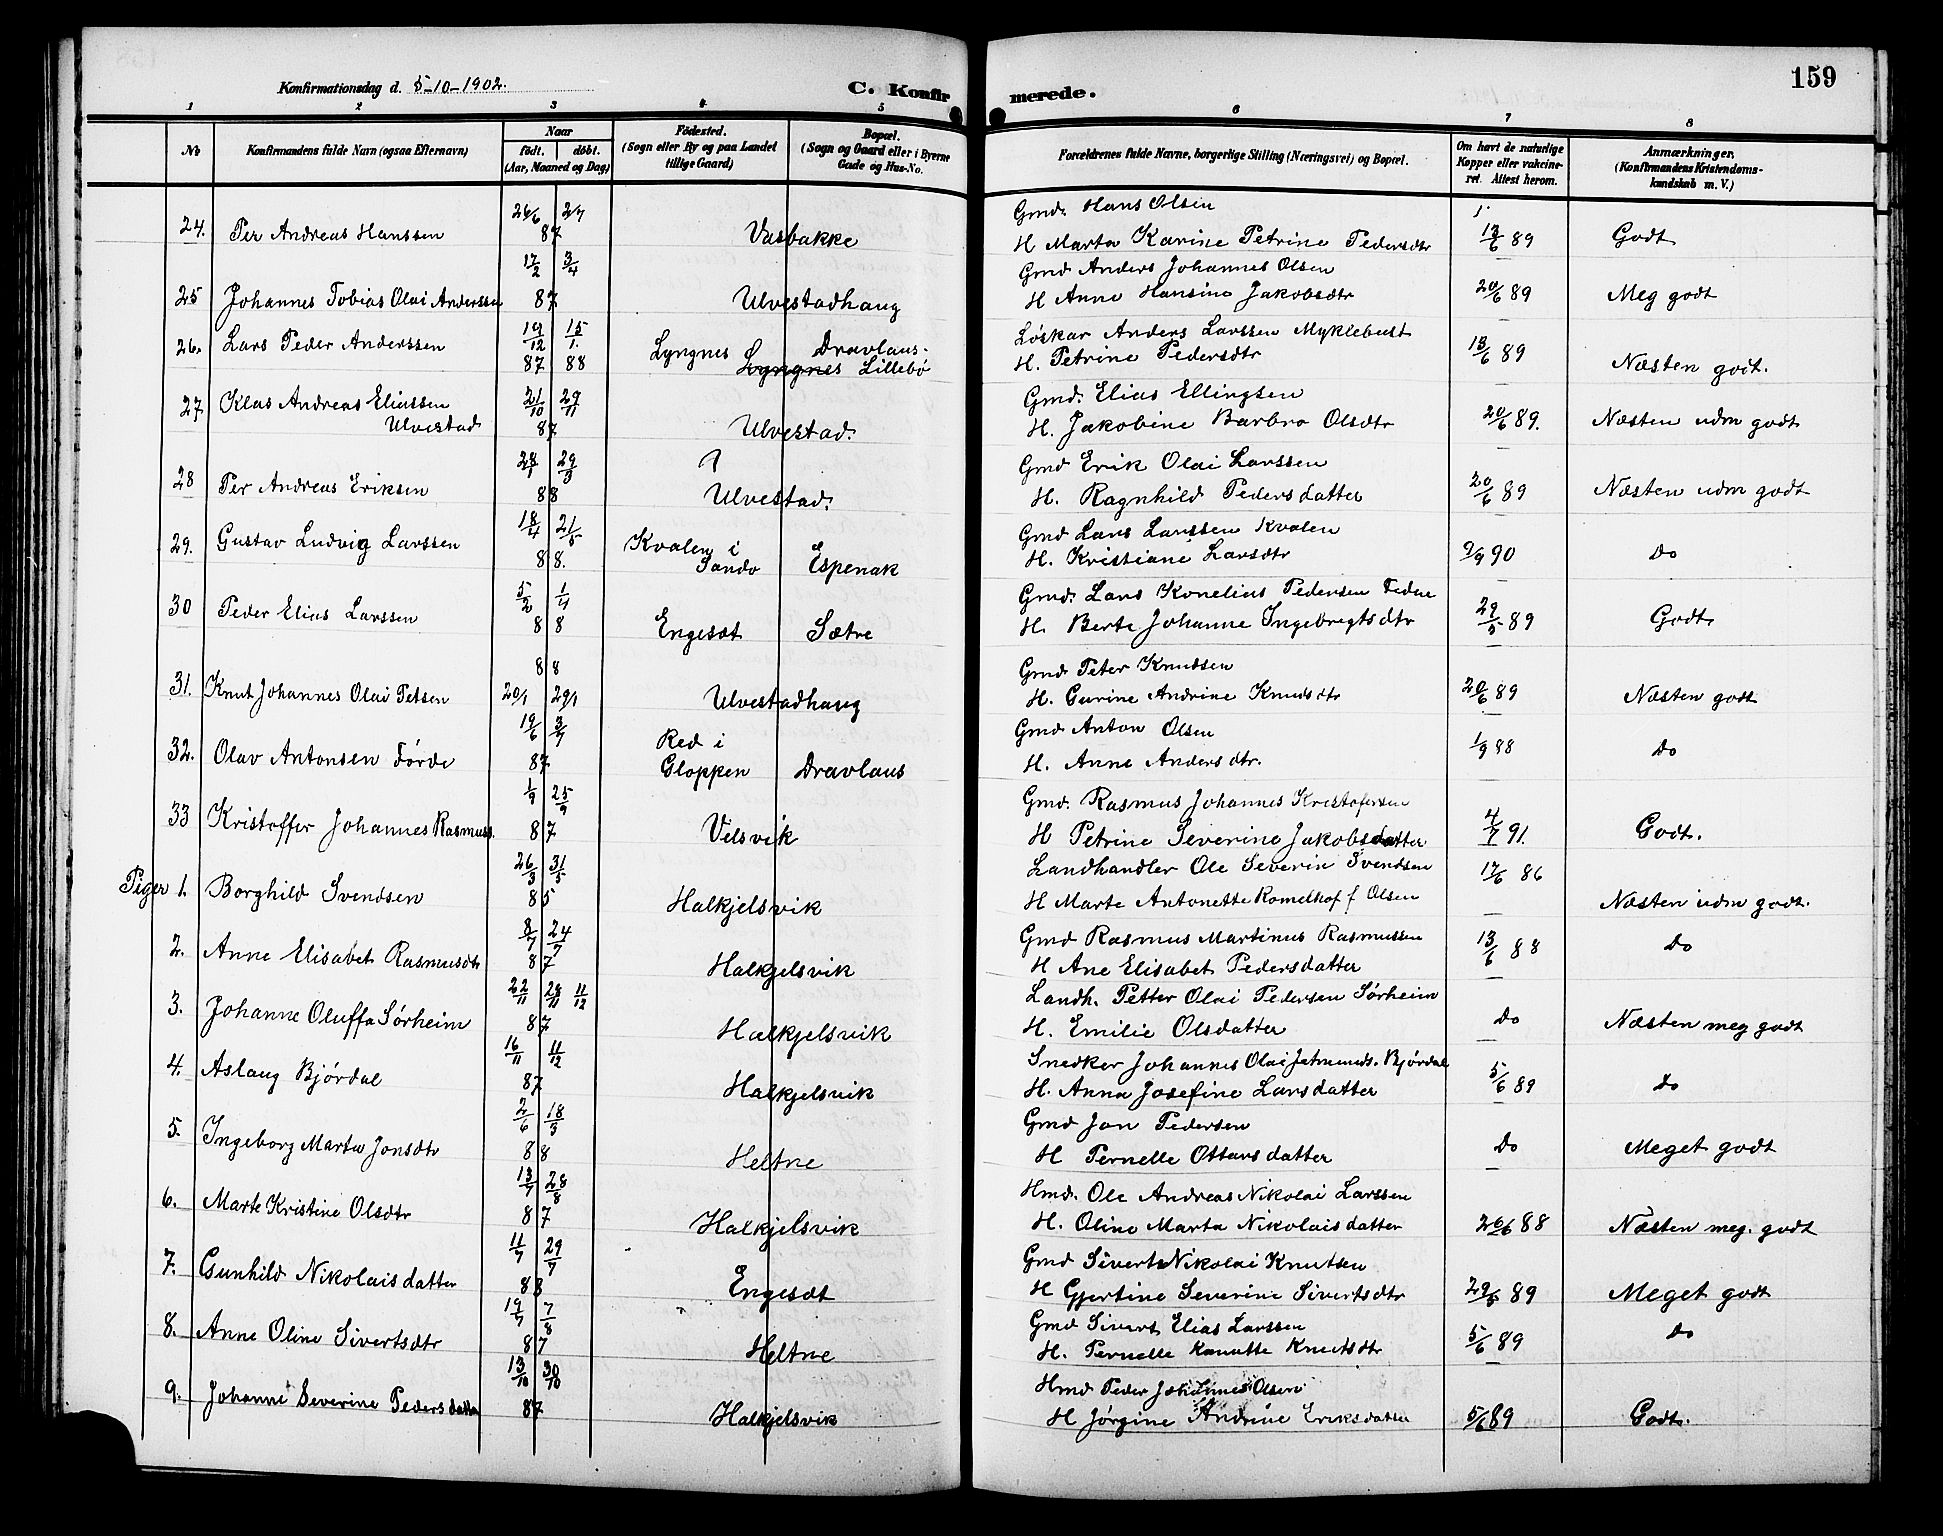 159
Konfirmationsdag d. 5-10-1902.
C. Konfirmerede.
1 2 3 4 5 6 7 8
No
Konfirmandens fulde Navn (ogsaa Efternavn)
Naar
født. døbt.
(Aar, Maaned og Dag)
Fødested.
(Sogn eller By og paa Landet tillige Gaard)
Bopæl.
(Sogn og Gaard eller i Byerne Gade og Hus-No.
Forældrenes fulde Navne, borgerlige Stilling (Næringsvei) og Bopæl.
Om havt de naturlige Kopper eller vakcineret. Attest herom.
Anmærkninger.
(Konfirmandens Kristendomskundskab m. V.)
24. Per Andreas Hanssen 26/6 2/7 87 Vasbakke Gmd. Hans Olsen
H Marta Karine Petrine Pedersdtr 13/6 89 Godt
25 Johannes Tobias Olai Anderssen 17/2 3/4 87 Ulvestadhaug Gmd Anders Johannes Olsen
H Anne Hansine Jakobsdtr 20/6 89 Meg godt
26. Lars Peder Anderssen 19/12 87 15/1. 88 Lyngnes Dravlaus- Lillebø Løskar Anders Larssen Myklebust
H. Petrine Pedersdtr 13/6 89 Næsten godt.
27 Klas Andreas Eliassen Ulvestad 21/10 29/11 87 Ulvestad. Gmd. Elias Ellingsen
H. Jakobine Barbro Olsdtr 20/6 89. Næsten udm godt
28 Per Andreas Eriksen 28/1 29/3 88 Ulvestad. Gmd Erik Olai Larssen
H. Ragnhild Pedersdatter 20/6 89 Næsten udm godt
29. Gustav Ludvig Larssen 18/4 21/5 88. Kvalen i Sando Espenak Gmd Lars Larssen Kvalen
H. Kristiane Larsdtr 9/9 90 Do
30 Peder Elias Larssen 5/2 1/4 88 Engeset Sætre Gmd. Lars Kornelius Pedersen
H. Berte Johanne Ingebregtsdtr 29/5 89 Godt
31. Knut Johannes Olai Petsen 88 20/1 29/1 Ulvestadhaug Gmd Peter Knudsen
H. Gurine Andrine Knudsdtr 20/6 89 Næsten godt
32. Olav Antonsen Førde 19/6 3/7 87 Red i Gloppen Dravlaus Gmd Anton Olsen
H. Anne Andersdtr. 1/9 88 Do
33 Kristoffer Johannes Rasmuss. 1/9 25/9 87 Velsvik Gmd. Rasmus Johannes Kristofersen
H Petrine Severine Jakobsdatter 4/7 91. Godt.
Piger 1. Borghild Svendsen 26/3 31/5 85 Halkjelsvik Landhandler Ole Severin Svendsen
H Marte Antonette Romelhof f Olsen 17/6 86 Næsten udm godt.
2. Anne Elisabet Rasmusdtr 8/7 24/7 87 Halkjelsvik Gmd Rasmus Martinus Rasmussen
H Ane Elisabet Pedersdatter 13/6 88 Do
3. Johanne Oluffa Sørheim 22/11 28/11 11/12 87 Halkjelsvik Landh. Petter Olai Pedersen Sørheim
H. Emilie Olsdatter Do Næsten meg godt
4. Aslaug Bjørdal 16/11 11/12 87 Halkjelsvik Snedker Johannes Olai Jetmunds. Bjørdal
H. Anna Josefine Larsdatter 5/6 89 Do
5. Ingeborg Marta Jonsdtr 2/6 18/3 88 Heltne Gmd Jon Pedersen
H Pernelle Ottarsdatter Do Meget godt
6. Marte Kristine Olsdtr 13/7 28/8 87 Halkjelsvik Hmd. Ole Andreas Nikolai Larssen
H. Oline Marta Nikolaisdatter 20/6 88 Næsten meg. godt
7. Gunhild Nikolaisdatter 11/7 29/7 88 Engeset Gmd Sivert Nikolai Knutsen
H Gjertine Severine Sivertsdtr 29/5 89 Meget godt
8. Anne Oline Sivertsdtr 19/7 7/8 87 Heltne Gmd Sivert Elias Larssen
H. Pernelle Kanutte Knutsdtr 5/6 89 Do
9. Johanne Severine Pedersdatter 13/10 30/10 87 Halkjelsvik Hmd Peder Johannes Olsen
H Jørgine Andrine Eriksdatter 5/6 89 Godt.